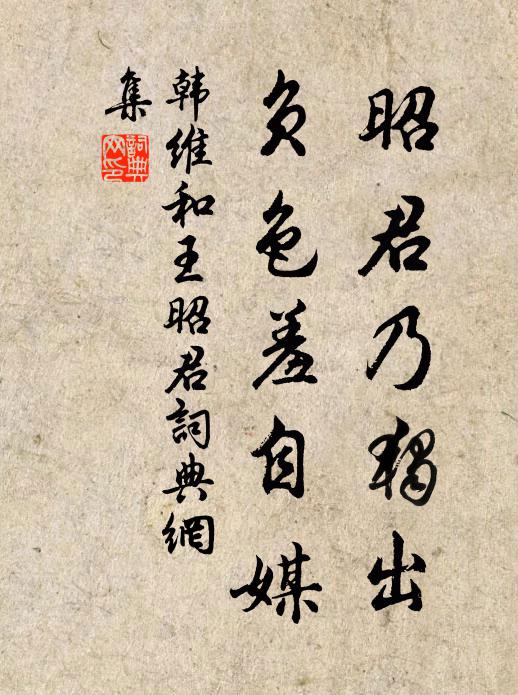 昭君乃獨出
负色羞自媒
韩维和王昭君詞典網
集
詞典
网印